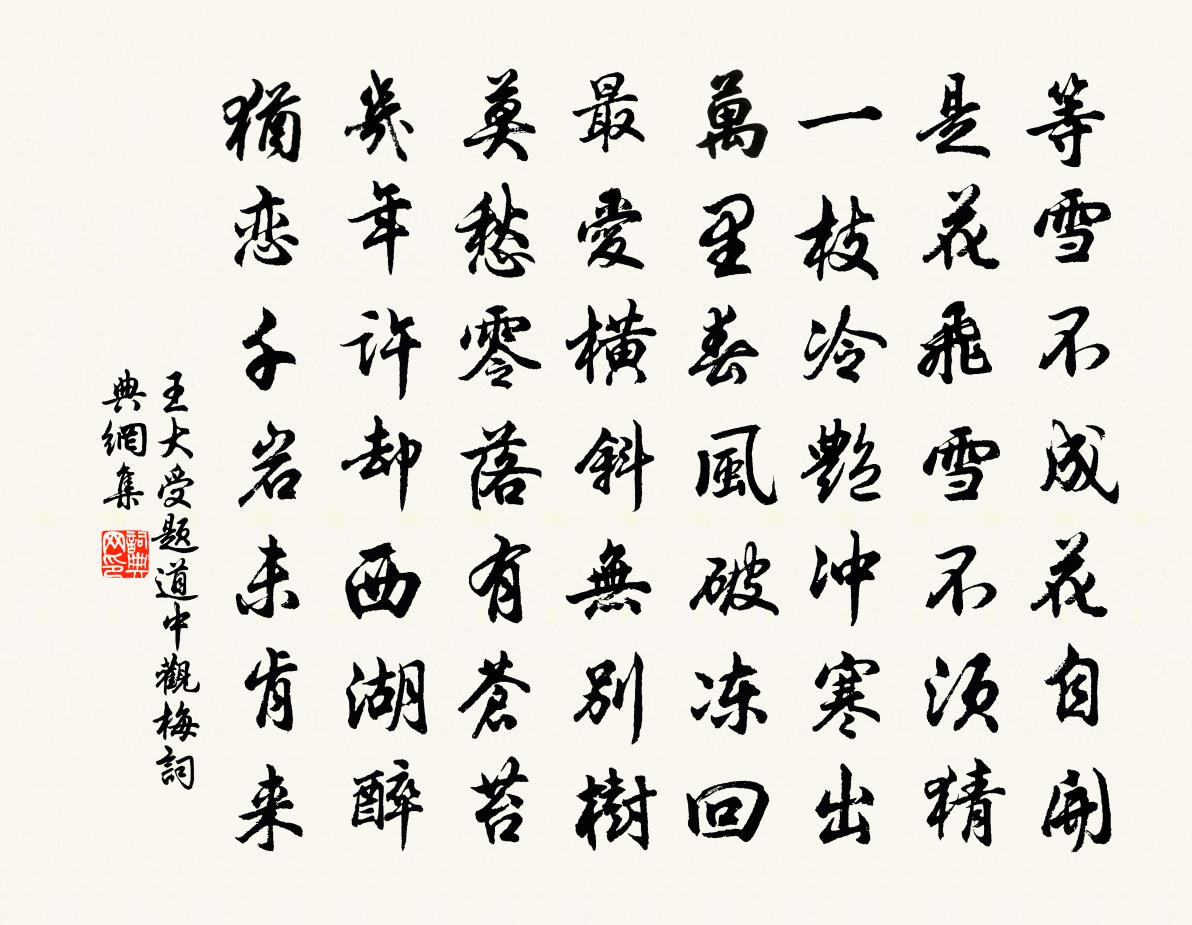 等雪不成花自開
是花飛雪不須猜
一枝冷艷沖寒出
萬里春風破凍回
最愛橫斜無別樹
莫愁零落有蒼苔
幾年許却西湖醉
猶恋千岩未肯来
王大受題道中觀梅詞
典網集
詞典
网印